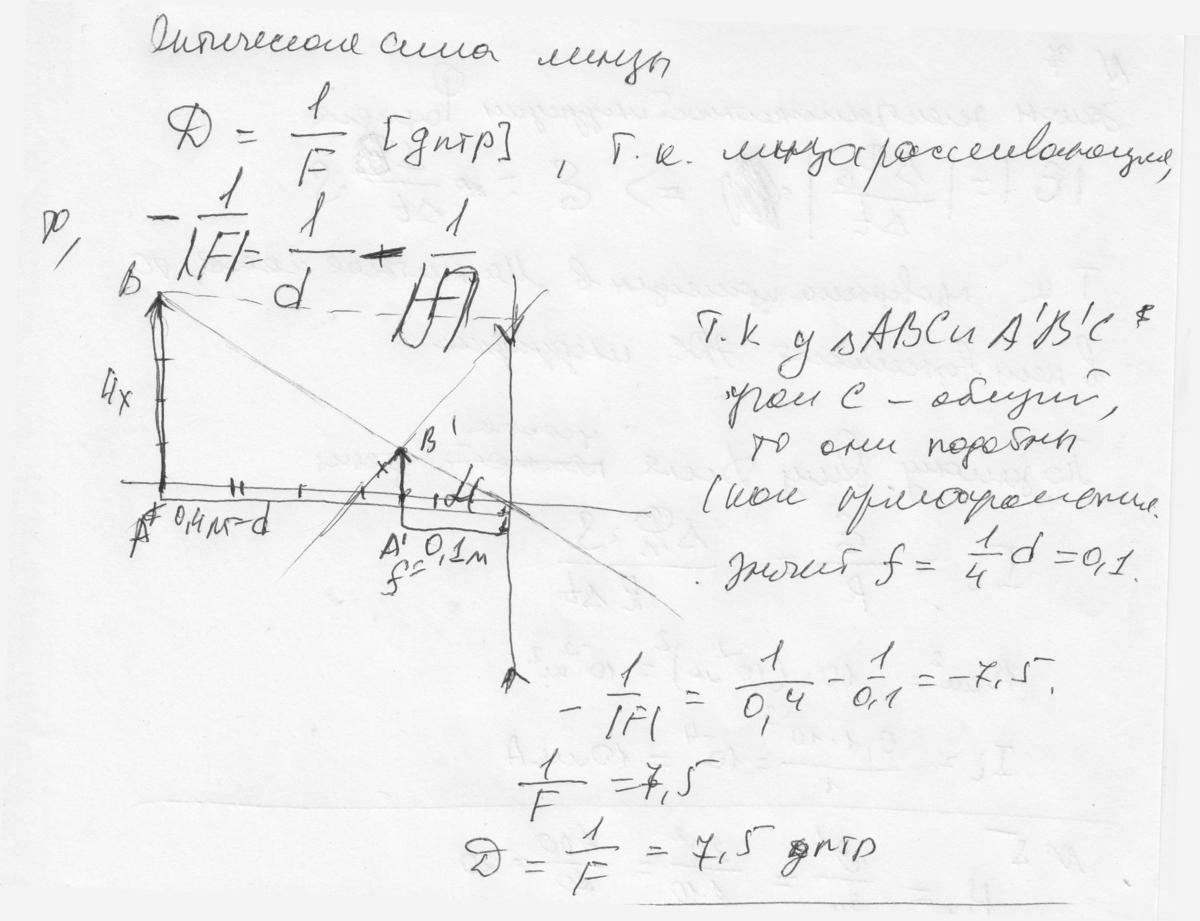 Оптическая сила линзы
D = 1/F [дптр], т.к. линза рассеивающая,
то, - 1/|F| = 1/d - 1/|f|
B
4x
B'
x
A
0,4м=d
A'
f=0,1м
C
Т.к у ΔABC и A'B'C
угол C - общий,
то они подобны
(как прямоугольные.
Значит f = 1/4 d = 0,1.
- 1/|F| = 1/0,4 - 1/0,1 = -7,5.
1/F = 7,5
D = 1/F = 7,5 дптр